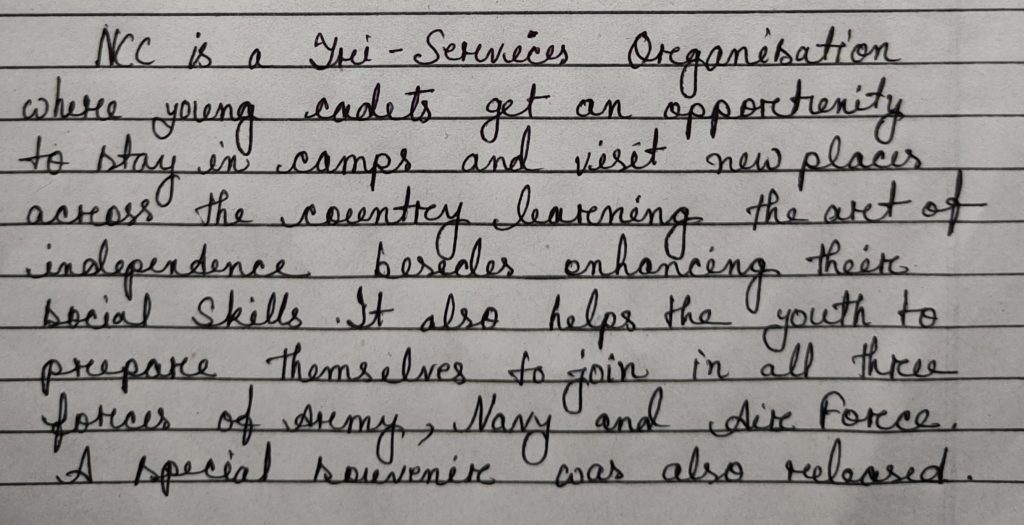 NCC is a Tri-Services Organisation
where young cadets get an opportunity
to stay in camps and visit new places
across the country learning the art of
independence besides enhancing their
social skills. It also helps the youth to
prepare themselves to join in all three
forces of Army, Navy and Air Force.
A special souvenir was also released.